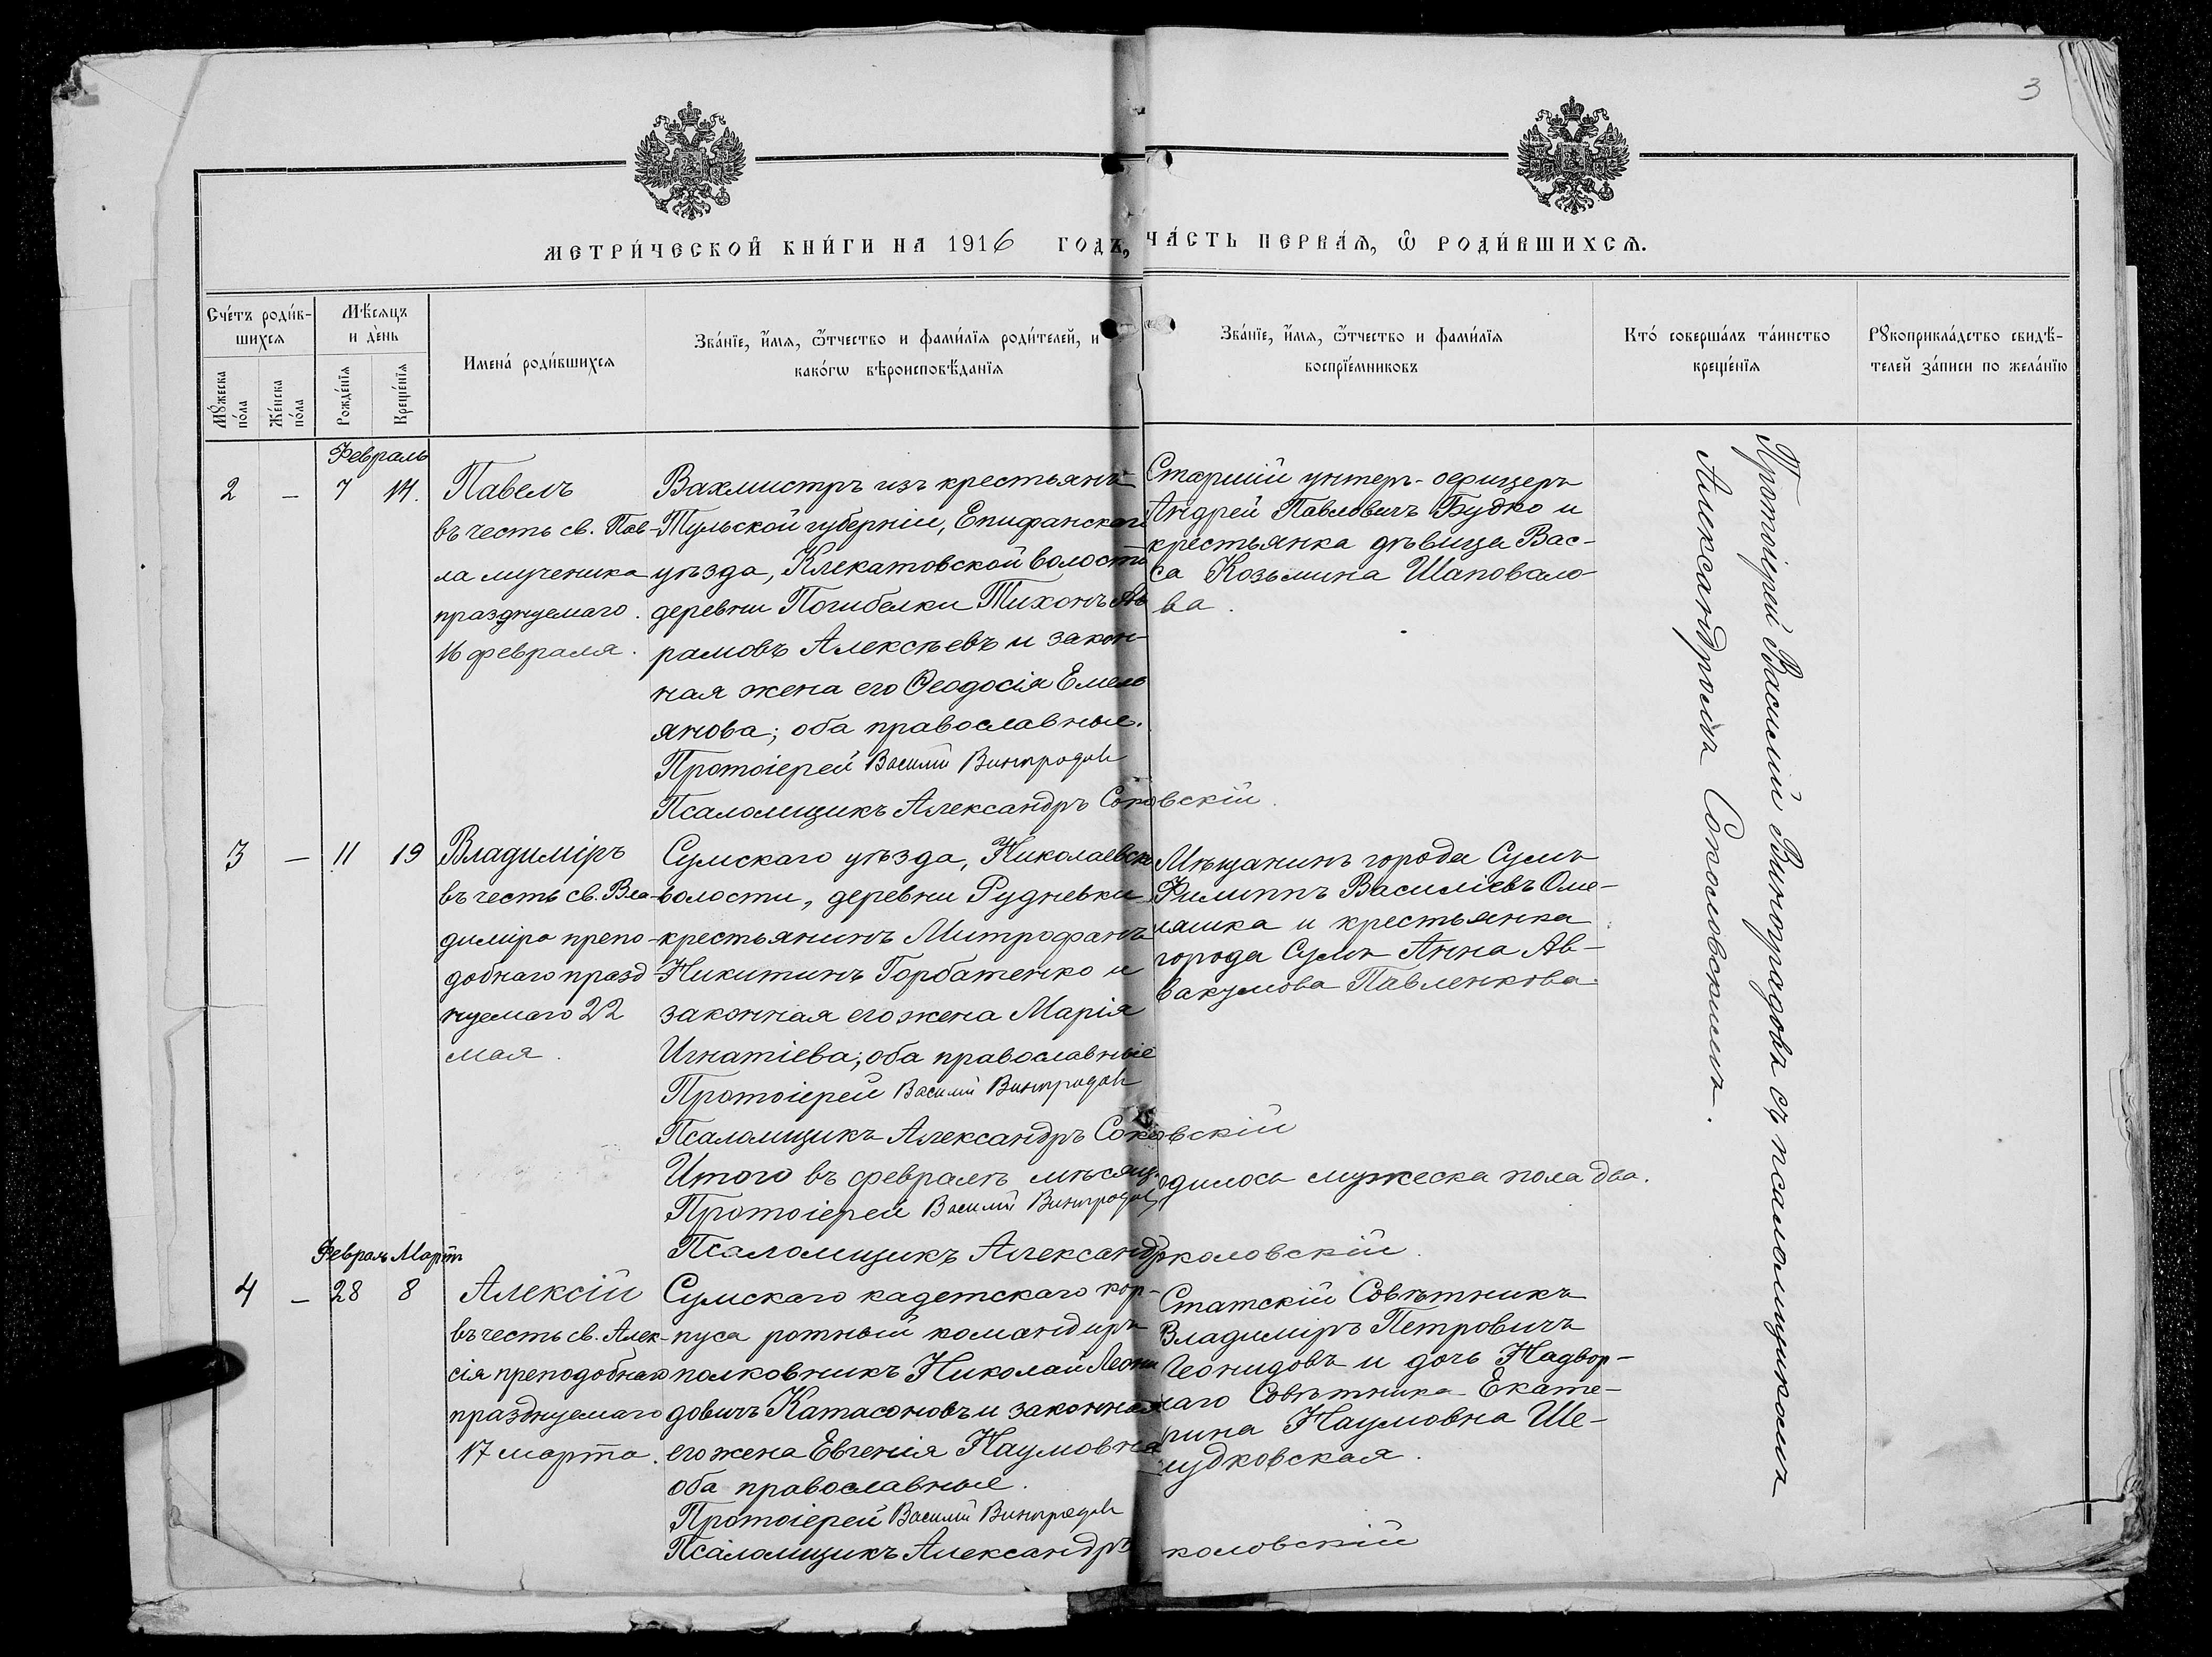 3
МЕТРИ́ЧЕСКОЙ КНИ́ГИ НА 1916 ГОДЪ, ЧА́СТЬ ПЕРВА́Ѧ, Ѽ РОДИ́ВШИХСѦ.
Сче́тъ роди́в-
шихсѧ
Мꙋ́жеска по́ла
Же́нска по́ла
Мѣ́сѧцъ
и де́нь
Рожде́нїѧ
Креще́нїѧ
Имена́ роди́вшихсѧ
Зва́нїе, и́мѧ, ѻ҆́тчество и фами́лїѧ роди́телей, и
како́гѡ вѣроисповѣ́данїѧ
Зва́нїе, и́мѧ, ѻ҆́тчество и фами́лїѧ
воспрїе́мниковъ
Кто́ соверша́лъ та́инство
креще́нїѧ
Рꙋкоприкла́дство свидѣ́-
телей за́писи по жела́нїю
Февраль
2 – 7 14.
Павелъ
въ честь св. Пав-
ла мученика
празднуемаго
16 февраля.
Вахмистръ изъ крестьянъ
Тульской губерніи, Епифанскаго
уѣзда, Клекатовской волости
деревни Погибелки Тихонъ Ав
рамовъ Алексѣевъ и закон-
ная жена его Ѳеодосія Емель
янова; оба православные.
Протоіерей Василій Виноградов
Псаломщикъ Александръ Соколовскій.
Старшій унтеръ-офицеръ
Андрей Павловичъ Будко и
крестьянка дѣвица Вас-
са Козьмина Шаповало-
ва.
Протоіерей Василій Виноградовъ съ псаломщикомъ
Александромъ Соколовскимъ.
3 – 11 19
Владиміръ
въ честь св. Вла-
диміра препо-
добнаго празд
нуемаго 22
мая.
Сумскаго уѣзда, Николаевск
волости, деревни Рудневки
крестьянинъ Митрофанъ
Никитинъ Горбатенко и
законная его жена Марія
Игнатіева; оба православные
Протоіерей Василій Виноградов
Псаломщикъ Александръ Соколовскій
Мѣщанинъ города Сумъ
Филиппъ Василіевъ Оме-
ляшка и крестьянка
города Сумъ Анна Ав-
вакумова Павленкова.
Итого въ февралѣ мѣсяц. одилось мужеска пола два.
Протоіерей Василій Виноградов
Псаломщикъ Александръ коловскій.
Феврал Март
4 – 28 8
Алексій
въ честь св. Алек-
сія преподобнаго
празднуемаго
17 марта.
Сумскаго кадетскаго кор-
пуса ротный командиръ
полковникъ Николай Леони
довичъ Катасоновъ и законная
его жена Евгенія Наумовна
оба православные.
Протоіерей Василій Виноградов
Псаломщикъ Александръ коловскій
Статскій Совѣтникъ
Владиміръ Петровичъ
Леонидовъ и дочь Надвор-
наго Совѣтника Екате-
рина Наумовна Ше-
лудковская.